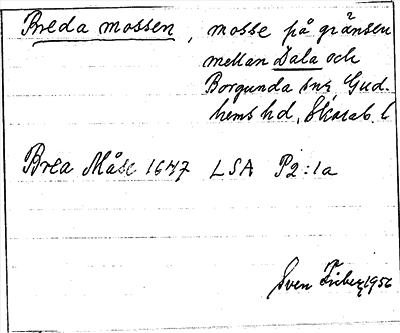 Breda mossen, mosse på gränsen
mellan Dala och
Borgunda snr, Gud-
hems hd, Skarab. l
Brea Måse 1647 LSA P2:1a
Sven Friberg 1956